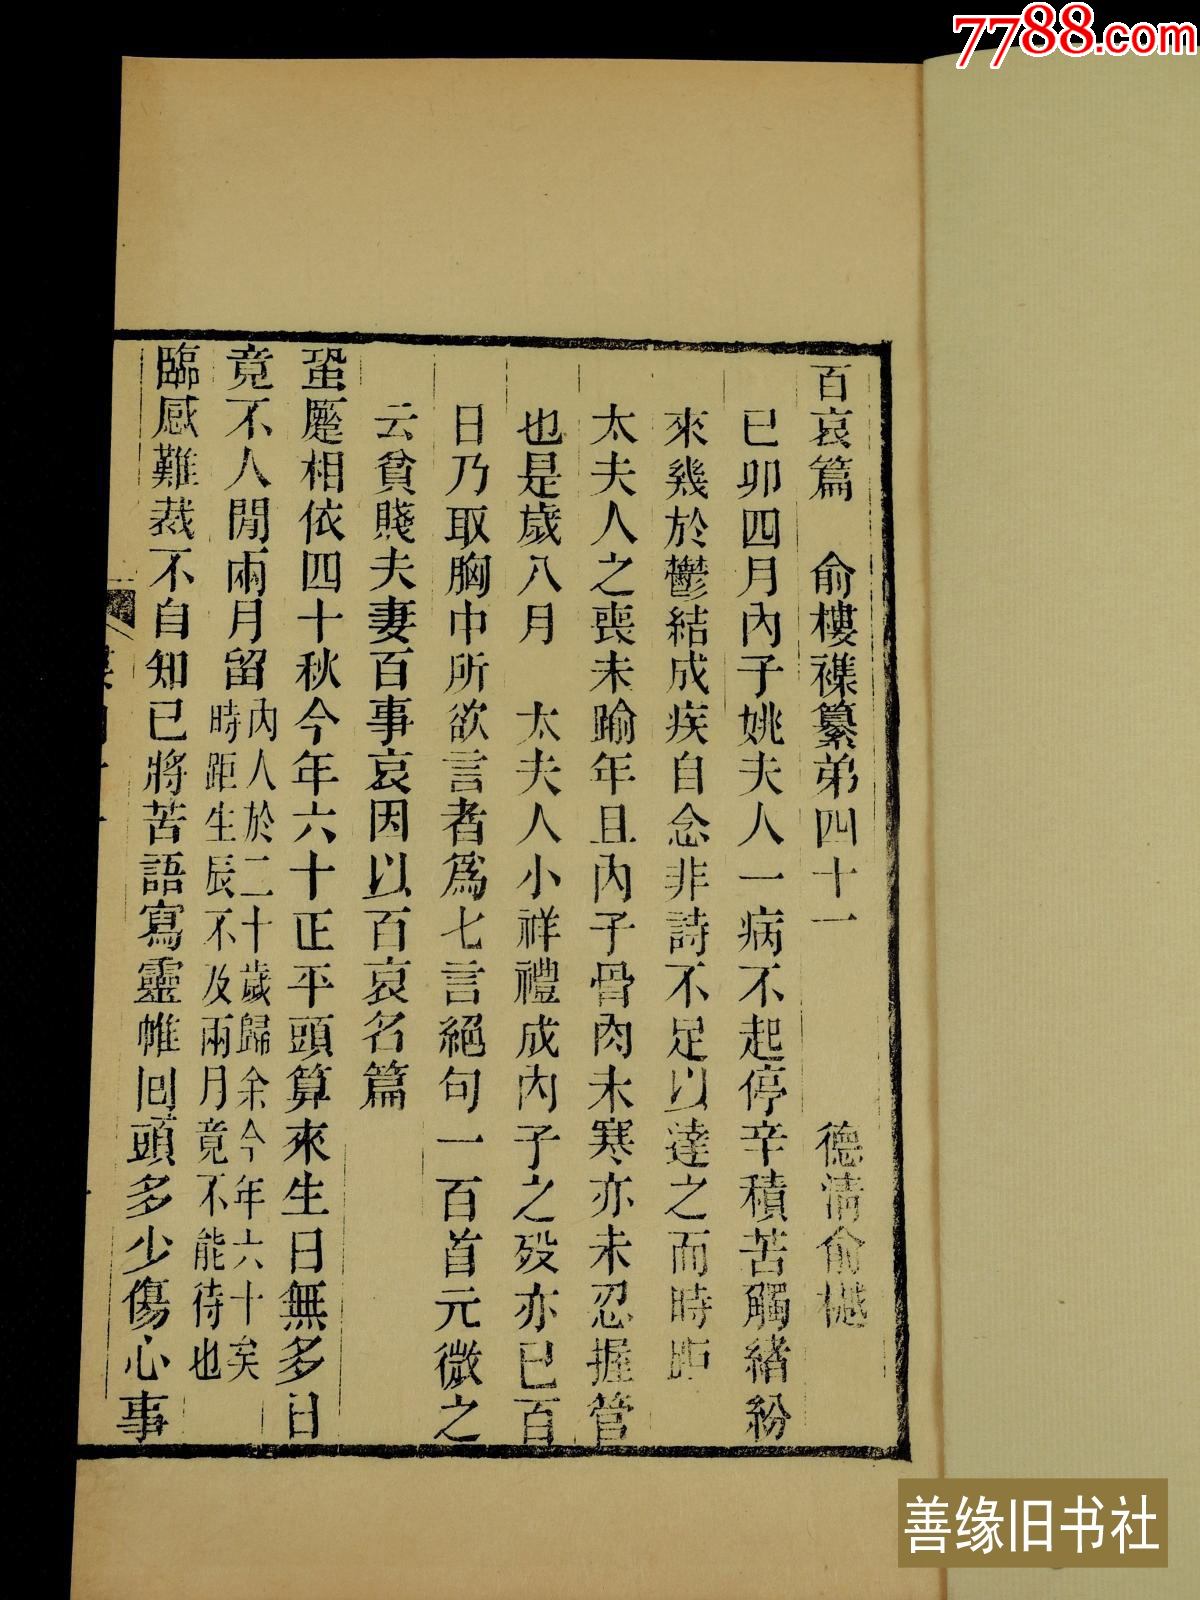 7788.com
百哀篇　俞樓襍纂弟四十一　德清俞樾
已卯四月內子姚夫人一病不起停辛積苦觸緒紛
來幾於鬱結成疾自念非詩不足以達之而時距
太夫人之喪未踰年且內子骨肉未寒亦未忍握管
也是歲八月　太夫人小祥禮成內子之歿亦已百
日乃取胸中所欲言者爲七言絕句一百首元微之
云貧賤夫妻百事哀因以百哀名篇
蛩蹷相依四十秋今年六十正平頭算來生日無多日
竟不人閒兩月留內人於二十歲歸余今年六十矣時距生辰不及兩月竟不能待也
臨感難裁不自知已將苦語寫靈帷回頭多少傷心事
善缘旧书社